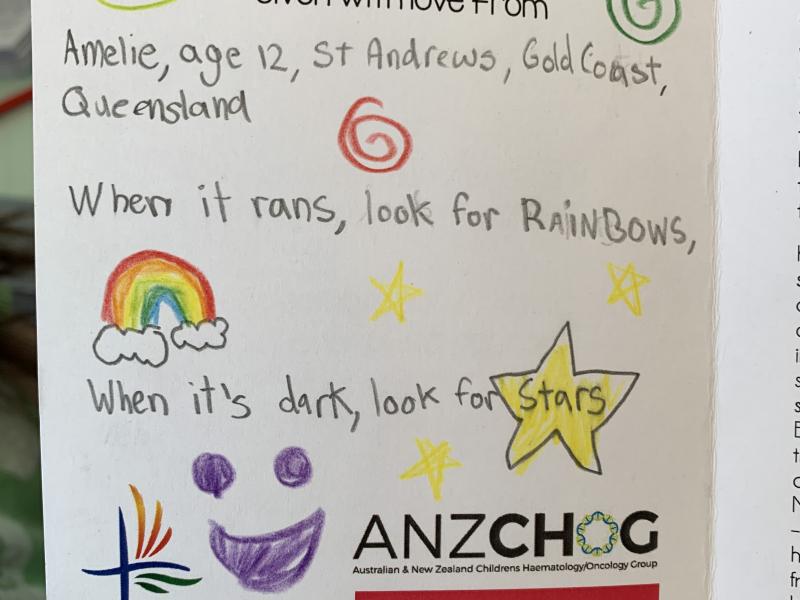 Given with love From
Amelie, age 12, St Andrews, Gold Coast,
Queensland
When it rans, look for RAiNBOWS,
When it's dark, look for Stars
ANZCHOG
Australian & New Zealand Childrens Haematology/Oncology Group